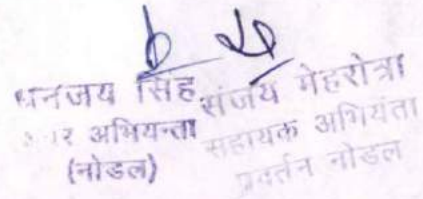 धनजय सिंह
अभियन्ता
(नोडल)
संजय मेहरोत्रा
सहायक अभियंता
प्रवर्तन नोडल